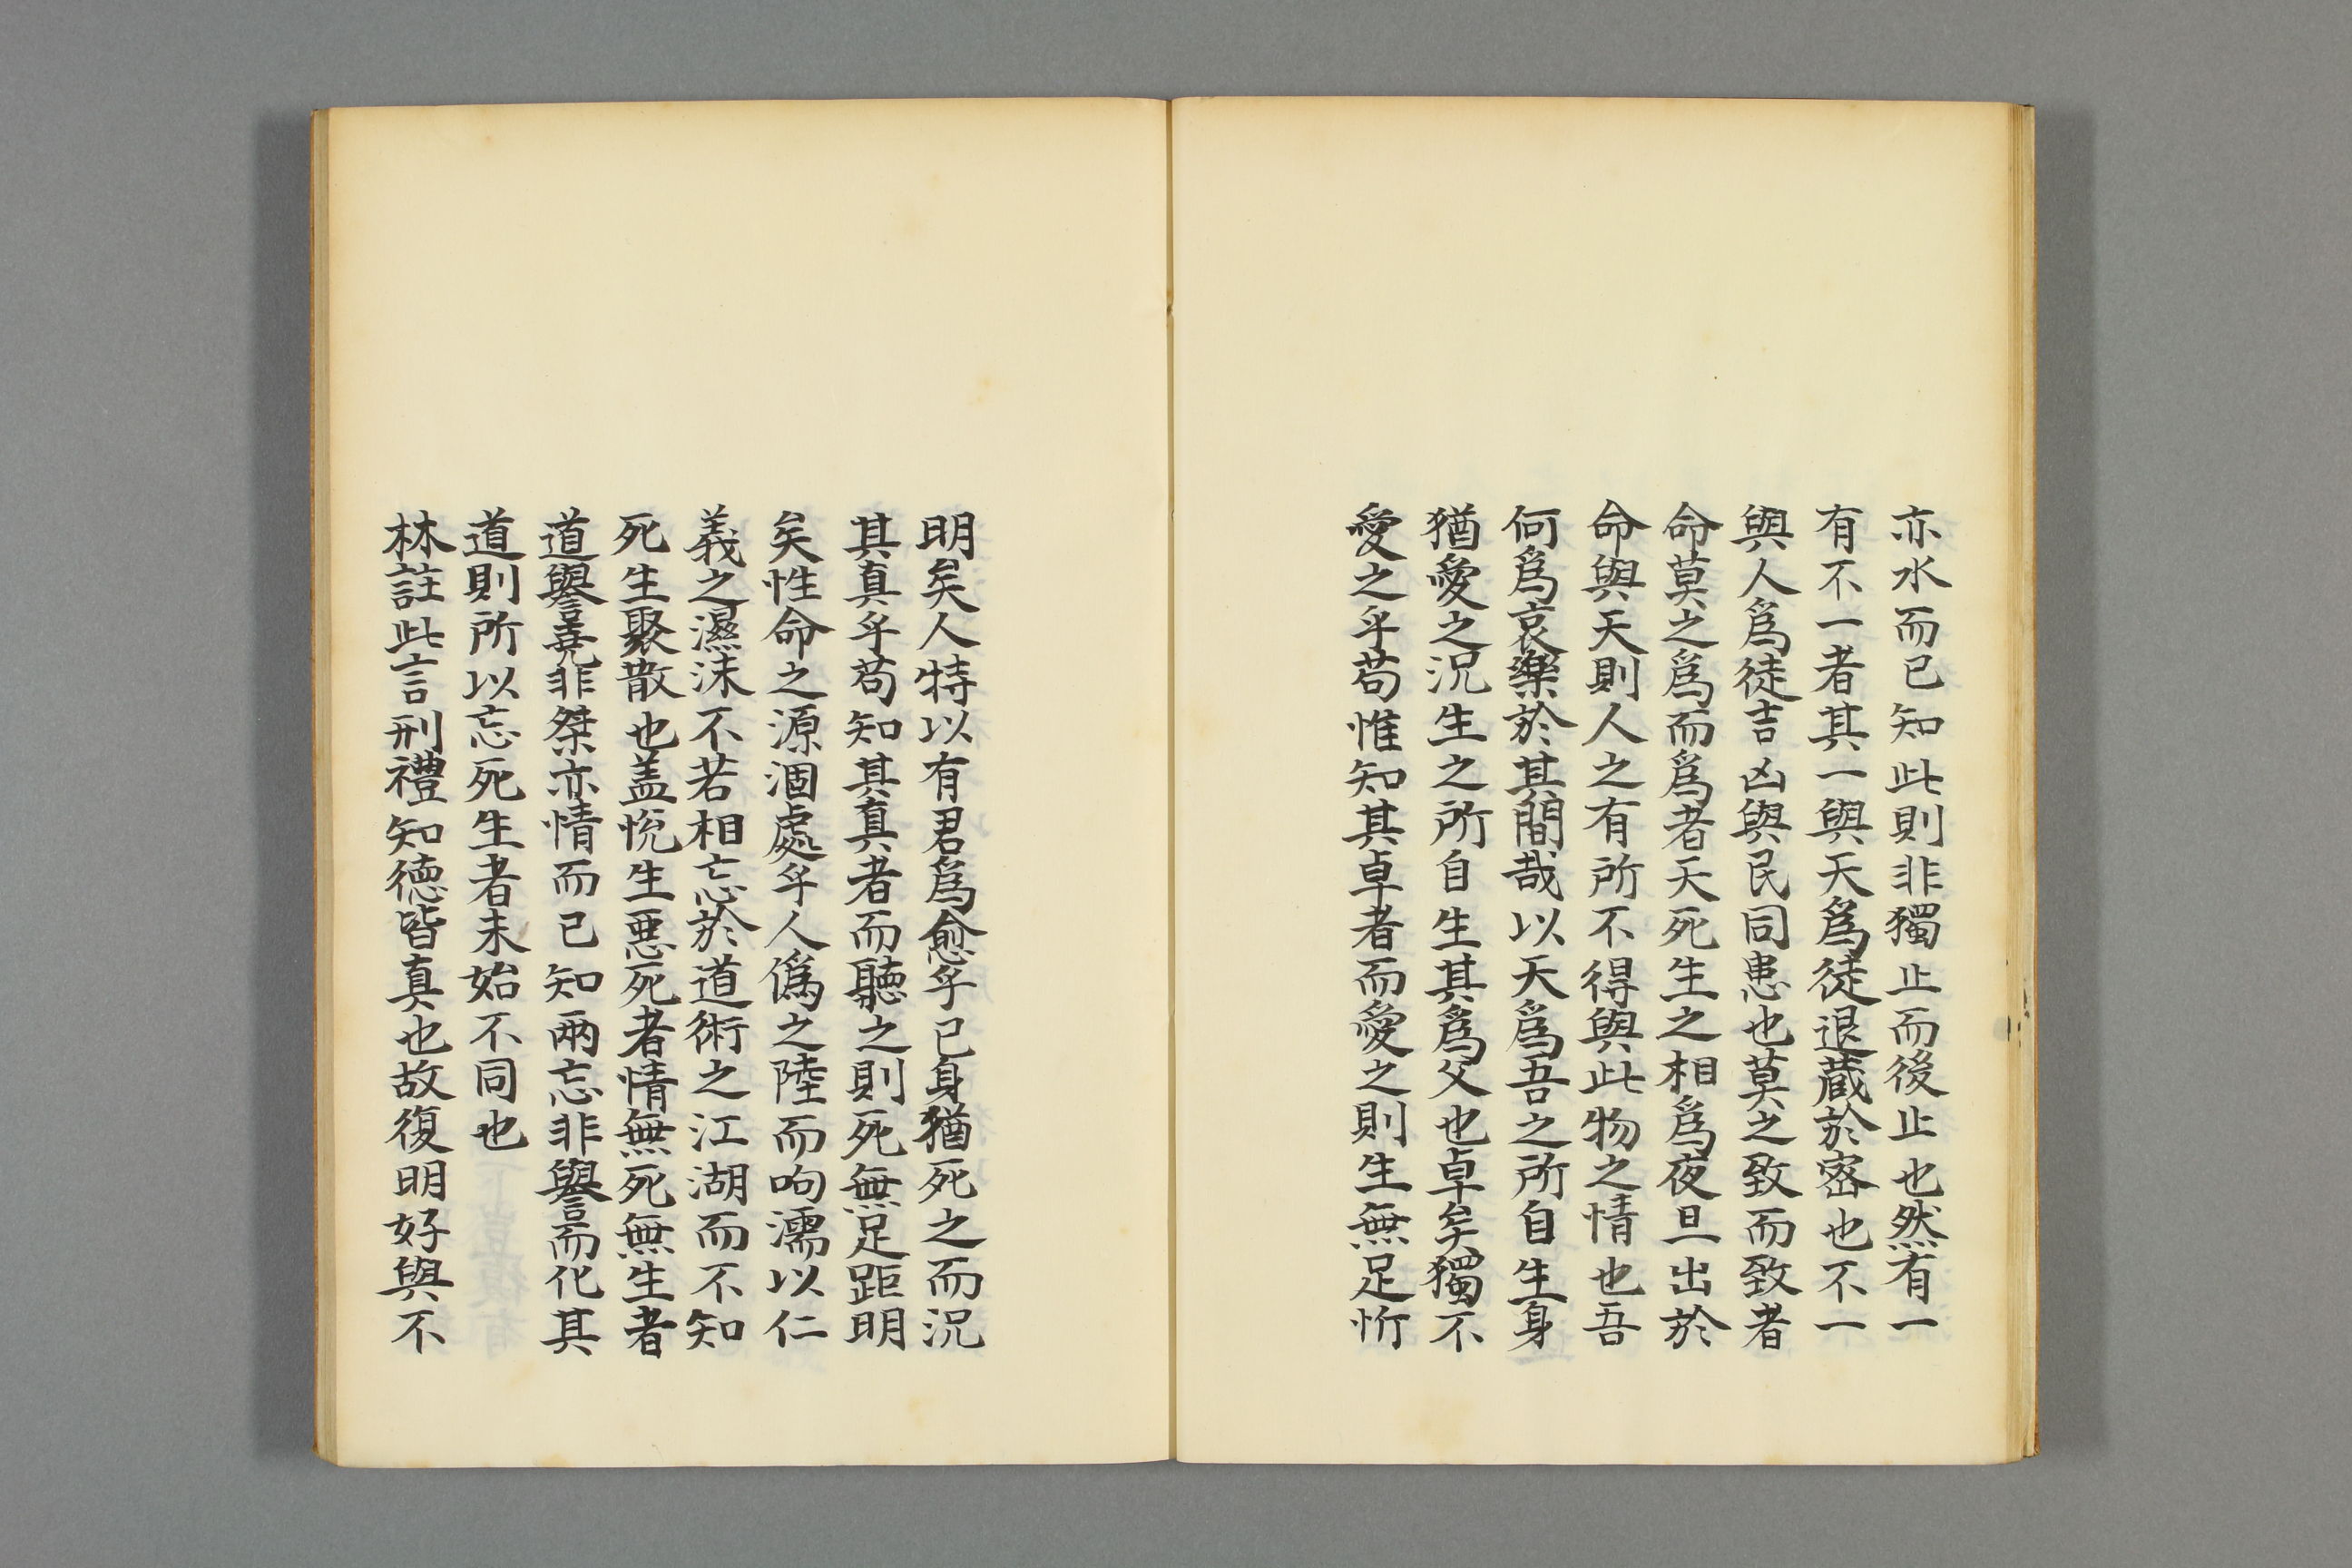 亦水而已知此則非獨止而後止也然有一
有不一者其一與天爲徒退蔵於宻也不一
與人爲徒吉凶與民同患也莫之致而致者
命莫之爲而爲者天死生之相爲夜旦出於
命與天則人之有所不得與此物之情也吾
何爲哀樂於其間哉以天爲吾之所自生身
猶愛之況生之所自生其爲父也卓矣獨不
愛之乎苟惟知其卓者而愛之則生無足忻
明矣人特以有君爲愈乎已身猶死之而況
其真乎苟知其真者而聽之則死無足距明
矣性命之源涸處乎人僞之陸而呴濡以仁
義之濕沫不若相忘於道術之江湖而不知
死生聚散也盖悅生惡死者情無死無生者
道譽堯非桀亦情而已知兩忘非譽而化其
道則所以忘死生者未始不同也
林註此言刑禮知德皆真也故復明好與不